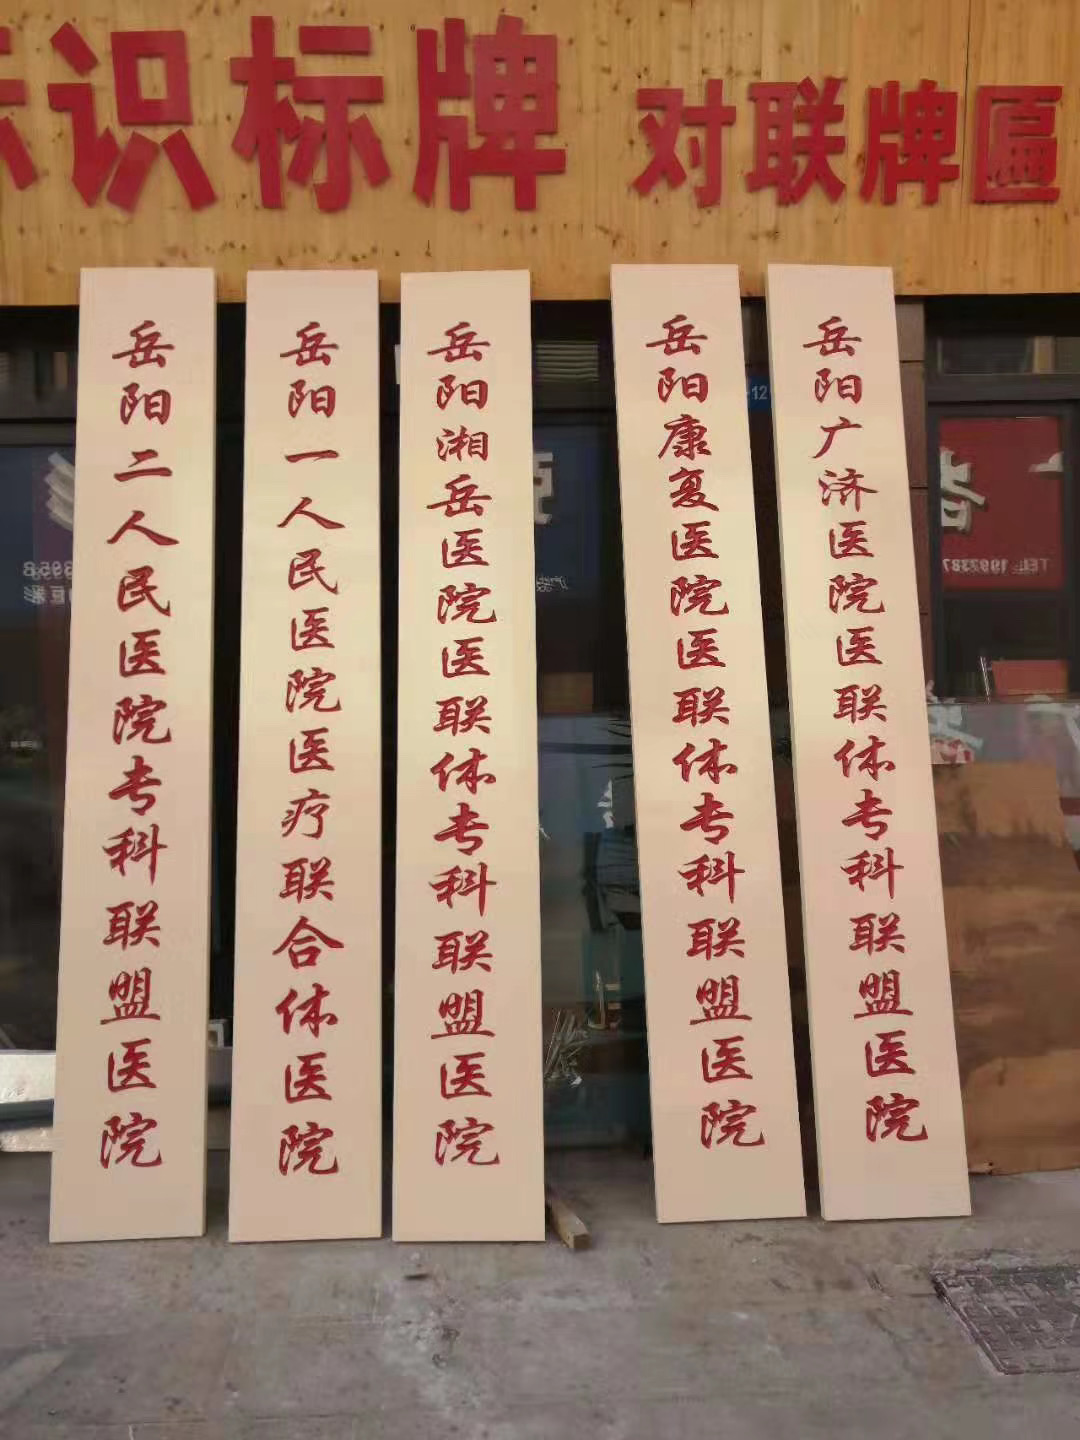 识标牌 对联牌匾
岳阳二人民医院专科联盟医院
岳阳一人民医院医疗联合体医院
岳阳湘岳医院医联体专科联盟医院
岳阳康复医院医联体专科联盟医院
岳阳广济医院医联体专科联盟医院
12